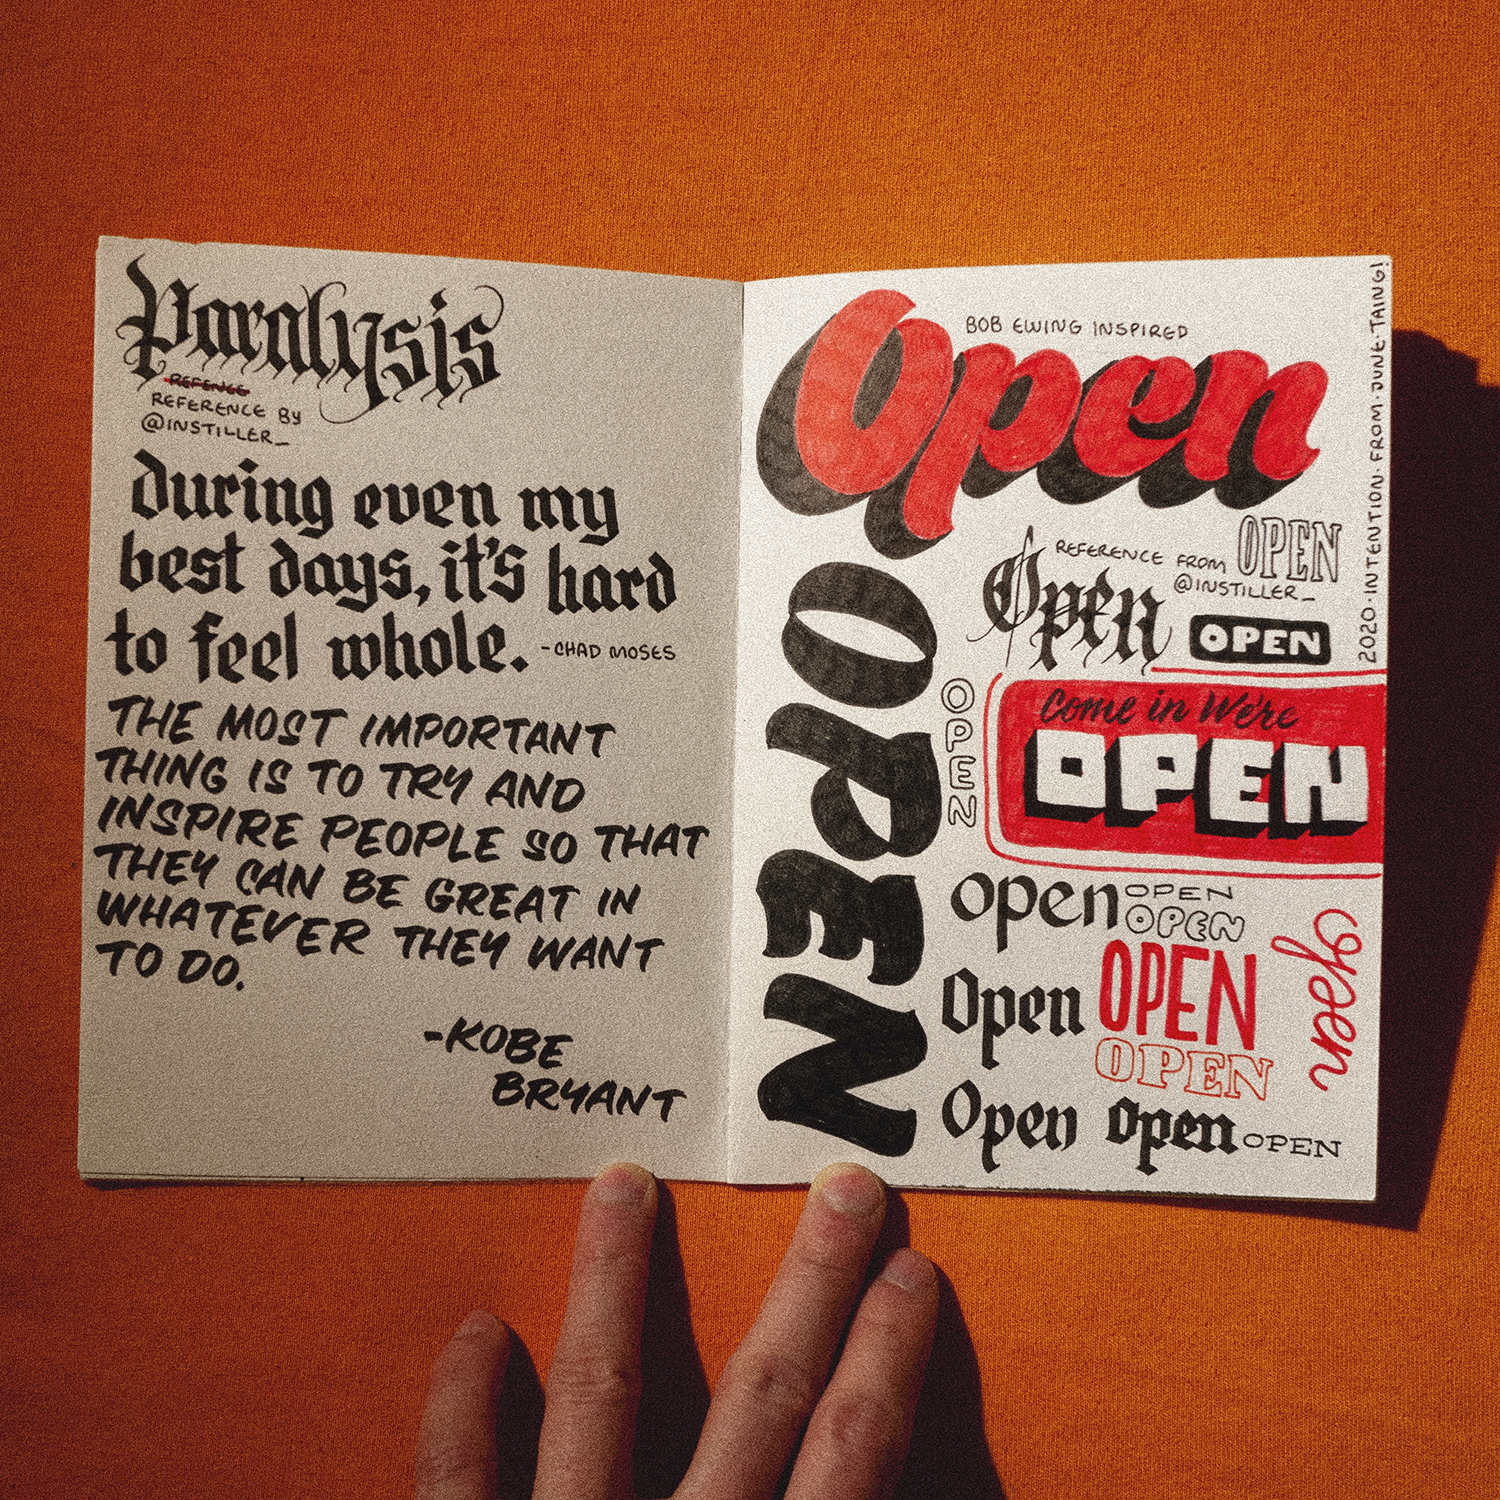 Paralysis
REFENCE
REFERENCE BY
@INSTILLER_
during even my
best days, it's hard
to feel whole. -CHAD MOSES
THE MOST IMPORTANT
THING IS TO TRY AND
INSPIRE PEOPLE SO THAT
THEY CAN BE GREAT IN
WHATEVER THEY WANT
TO DO.
-KOBE
BRYANT
BOB EWING INSPIRED
Open
OPEN
REFERENCE FROM
@INSTILLER_
OPEN
Open
OPEN
2020·INTENTION·FROM·JUNE·TAING!
OPEN
Come in We're
OPEN
open
OPEN
OPEN
Open
Open
OPEN
OPEN
Open
Open
OPEN